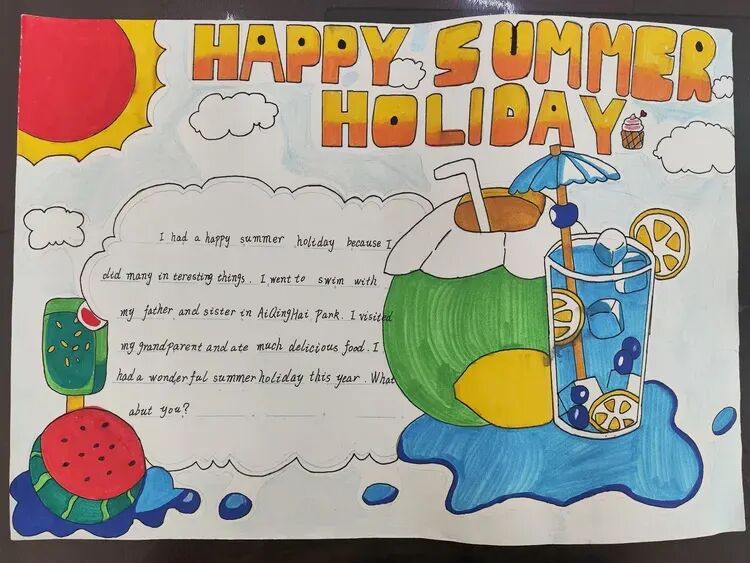 HAPPY SUMMER
HOLIDAY
I had a happy summer holiday because I
did many in teresting things. I went to swim with
my father and sister in AiQingHai Park. I visited
my grandparent and ate much delicious food. I
had a wonderful summer holiday this year. What
abut you?